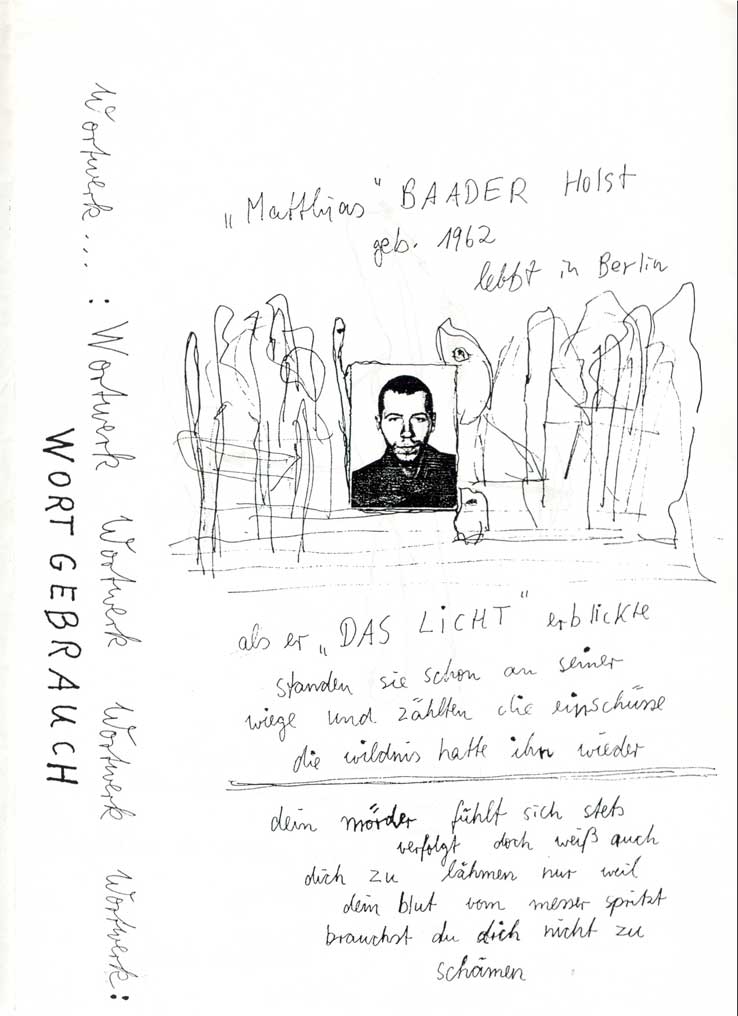 Wortwerk... : Wortwerk Wortwerk Wortwerk Wortwerk:
WORT GEBRAUCH
„Matthias“ BAADER Holst
geb. 1962
lebbt in Berlin
als er „DAS LICHT“ erblickte
standen sie schon an seiner
wiege und zählten die einschüsse
die wildnis hatte ihn wieder
dein mörder fühlt sich stets
verfolgt doch weiß auch
dich zu lähmen nur weil
dein blut vom messer spritzt
brauchst du dich nicht zu
schämen